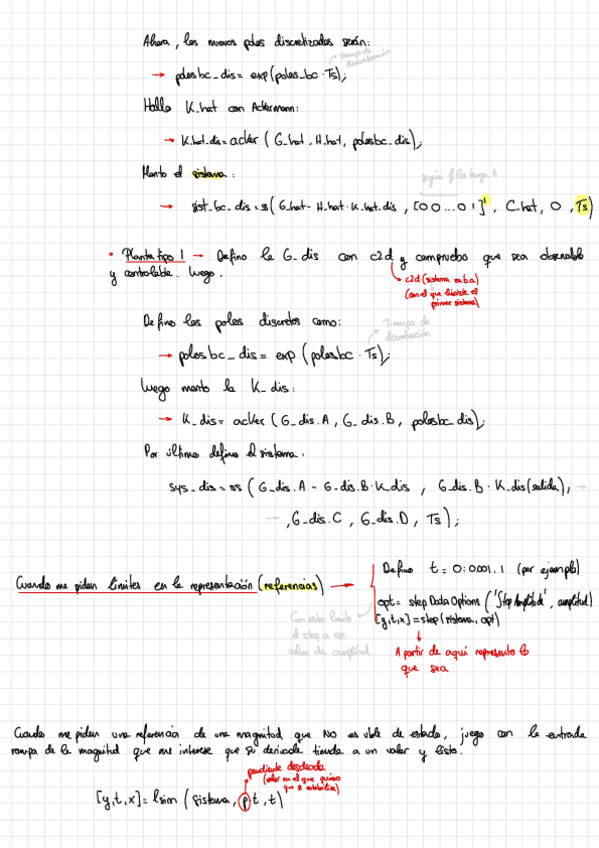 Ahora, los nuevos polos discretizados serán:
→ polosbc_dis = exp(polos_bc · Ts);
tiempo de discretización
Hallo K.hat con Ackermann:
→ K.hat.dis = acker ( G_hat, H.hat, polosbc_dis);
Monto el sistema:
según filas tenga A
→ sist_bc_dis = ss ( G_hat - H.hat · K.hat.dis , [0 0 ... 0 1]' , C.hat, 0 , Ts)
• Planta tipo 1 → Defino la G_dis con c2d y compruebo que sea observable
y controlable. Luego.
c2d (sistema en b.a)
(con el que hiciste el
primer sistema)
Defino los polos discretos como:
Tiempo de
discretización
→ polosbc_dis = exp (polosbc · Ts);
Luego monto la K_dis:
→ K_dis = acker ( G_dis.A , G_dis.B , polosbc_dis);
Por último defino el sistema.
sys_dis = ss ( G_dis.A - G_dis.B · K_dis , G_dis.B · K_dis(salida), →
→ , G_dis.C , G_dis.D , Ts) ;
Cuando me piden límites en la representación (referencias) →
Defino t = 0:0.001:1 (por ejemplo)
opt = stepDataOptions ('StepAmplitude', amplitud)
[y,t,x] = step(sistema, opt)
Con esto limito
el step a ese
valor de amplitud
A partir de aquí represento lo
que sea
Cuando me piden una referencia de una magnitud que NO es vble de estado, juego con la entrada
rampa de la magnitud que me interese que su derivada tienda a un valor y listo.
pendiente deseada
(valor en el que quiero
que se estabilice)
[y,t,x] = lsim ( sistema, p·t , t)